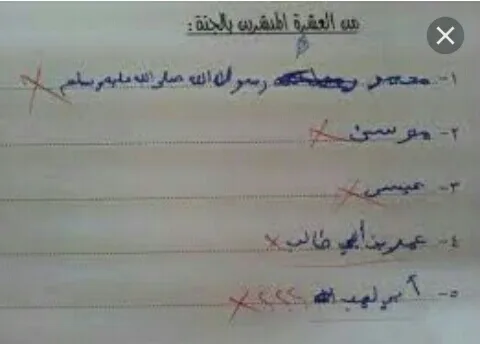 من العشرة المبشرين بالجنة :
١- محمد رسول الله صلى الله عليه وسلم
٢- موسى
٣- عيسى
٤- عمر بن أبي طالب
٥- أبي لهب ؟؟؟؟